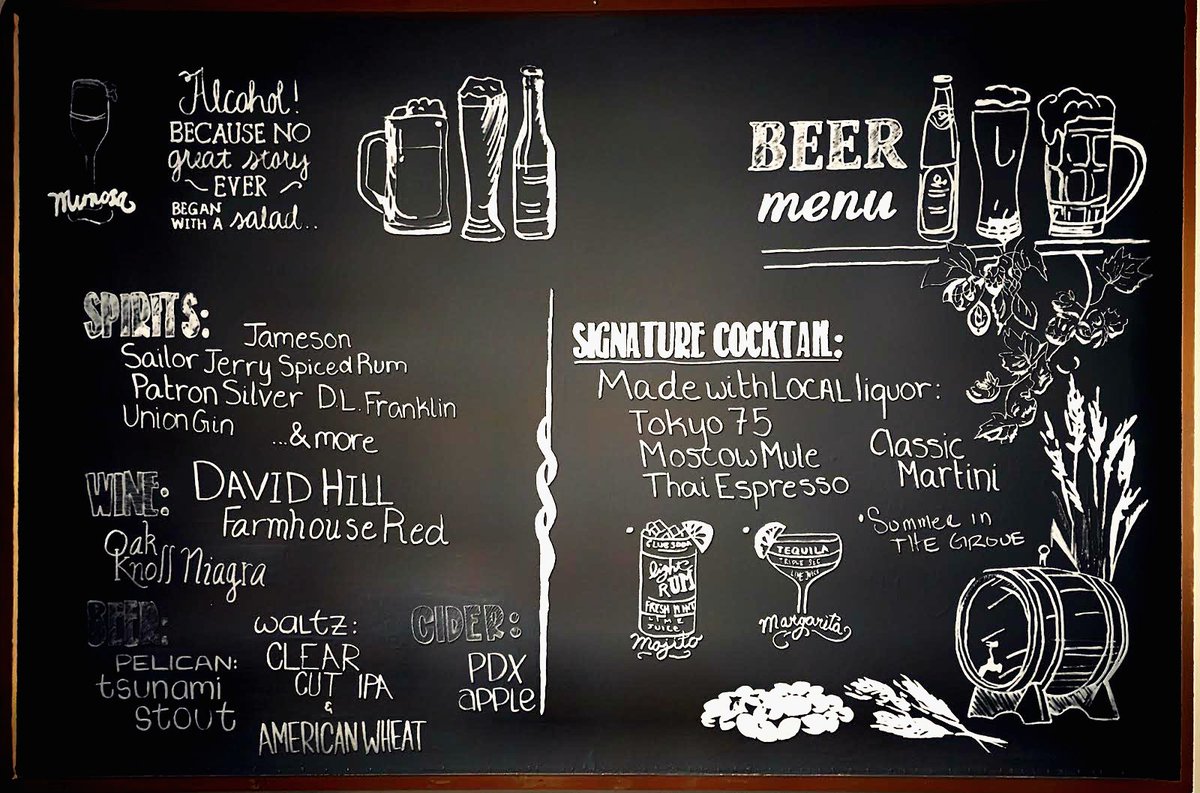 Mimosa
Alcohol!
BECAUSE NO
great story
EVER
BEGAN
WITH A salad..
BEER
menu
SPIRITS:
Jameson
Sailor Jerry Spiced Rum
Patron Silver D.L. Franklin
Union Gin
...& more
WINE:
DAVID HILL
Farmhouse Red
Oak
Knoll Niagra
BEER:
PELICAN:
tsunami
stout
waltz:
CLEAR
CUT IPA
&
AMERICAN WHEAT
CIDER:
PDX
apple
SIGNATURE COCKTAIL:
Made with LOCAL liquor:
Tokyo 75
Moscow Mule
Thai Espresso
Classic
Martini
•Summer in
THE GROVE
CLUB SODA
light
RUM
FRESH MINT
LIME
JUICE
Mojito
TEQUILA
TRIPLE SEC
LIME JUICE
Margarita